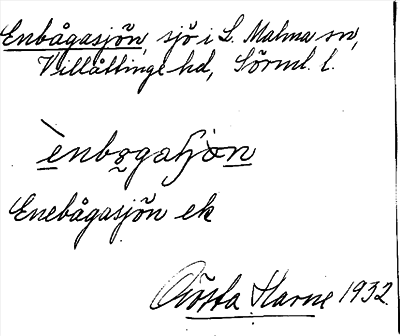 Enbågasjön, sjö i L. Malma sn,
Villåttinge hd, Sörml. l.
ènbo̤gaʃjòn
Enebågasjön ek
Gösta Harne 1932.